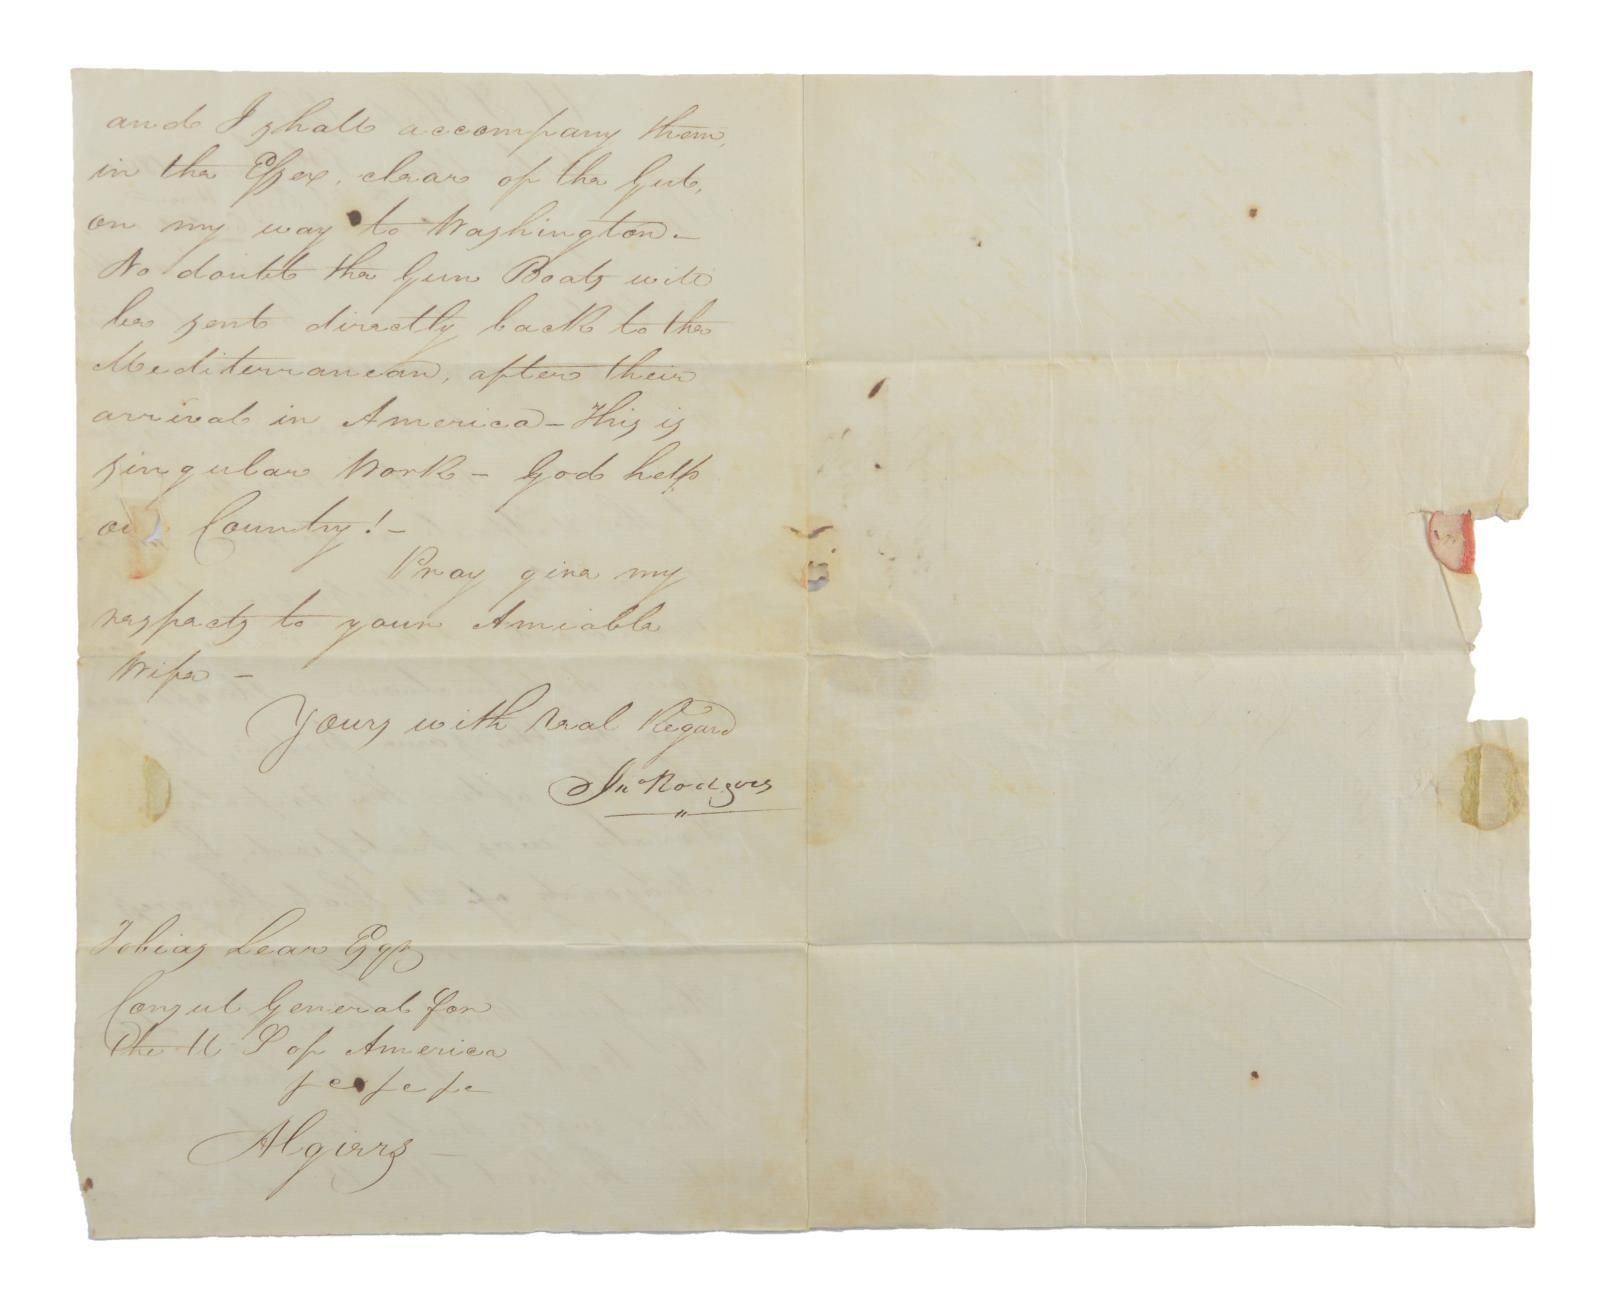 and I shall accompany them,
in the Essex, clear of the Gut,
on my way to Washington –
No doubt the Gun Boats will
be sent directly back to the
Mediterranean, after their
arrival in America – This is
singular Work – God help
our Country! –
Pray give my
respects to your Amiable
Wife –
Yours with real Regard
Jno Rodgers
Tobias Lear Esqr
Consul General for
the U S of America
&c &c &c
Algiers –